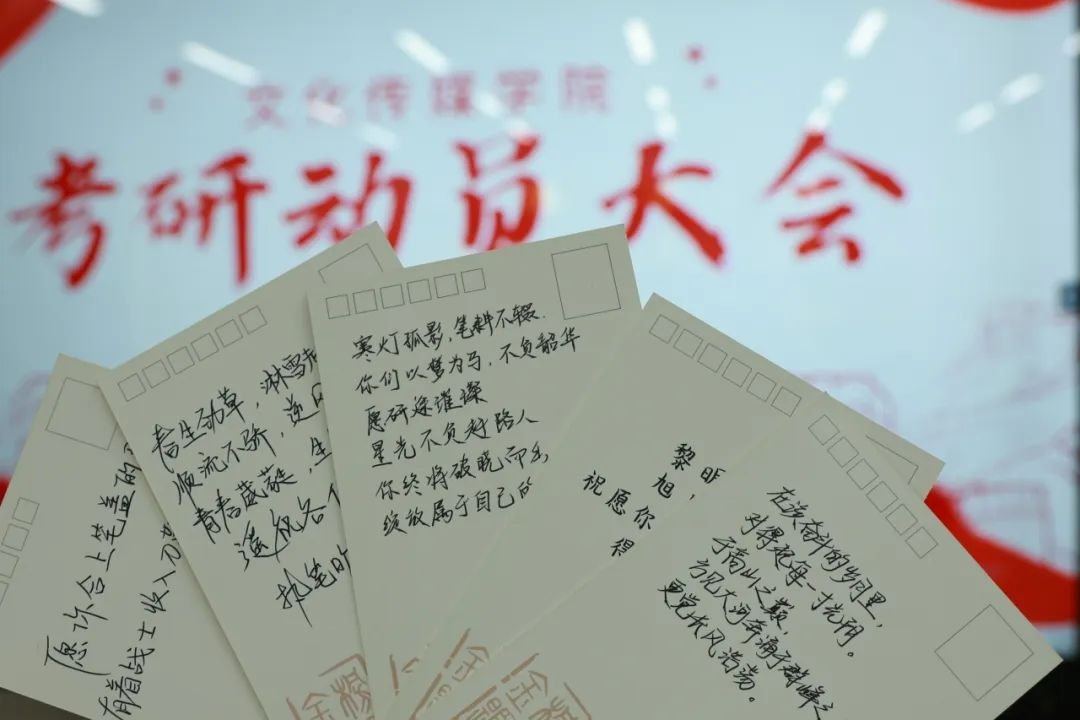 文化传媒学院
考研动员大会
愿你合上笔盖的
有着战士收入刀
春生劲草，淋雪
顺流不骄，逆
青春葳蕤，生
遥祝各
执笔时
寒灯孤影，笔耕不辍.
你们以梦为马，不负韶华
愿研途璀璨
星光不负赶路人
你终将破晓而
绽放属于自己的
黎
旭，
祝愿你
在该奋斗的岁月里，
对得起每一寸光阴。
于高山之巅，
方见大河奔涌于群峰之
更觉长风浩荡。